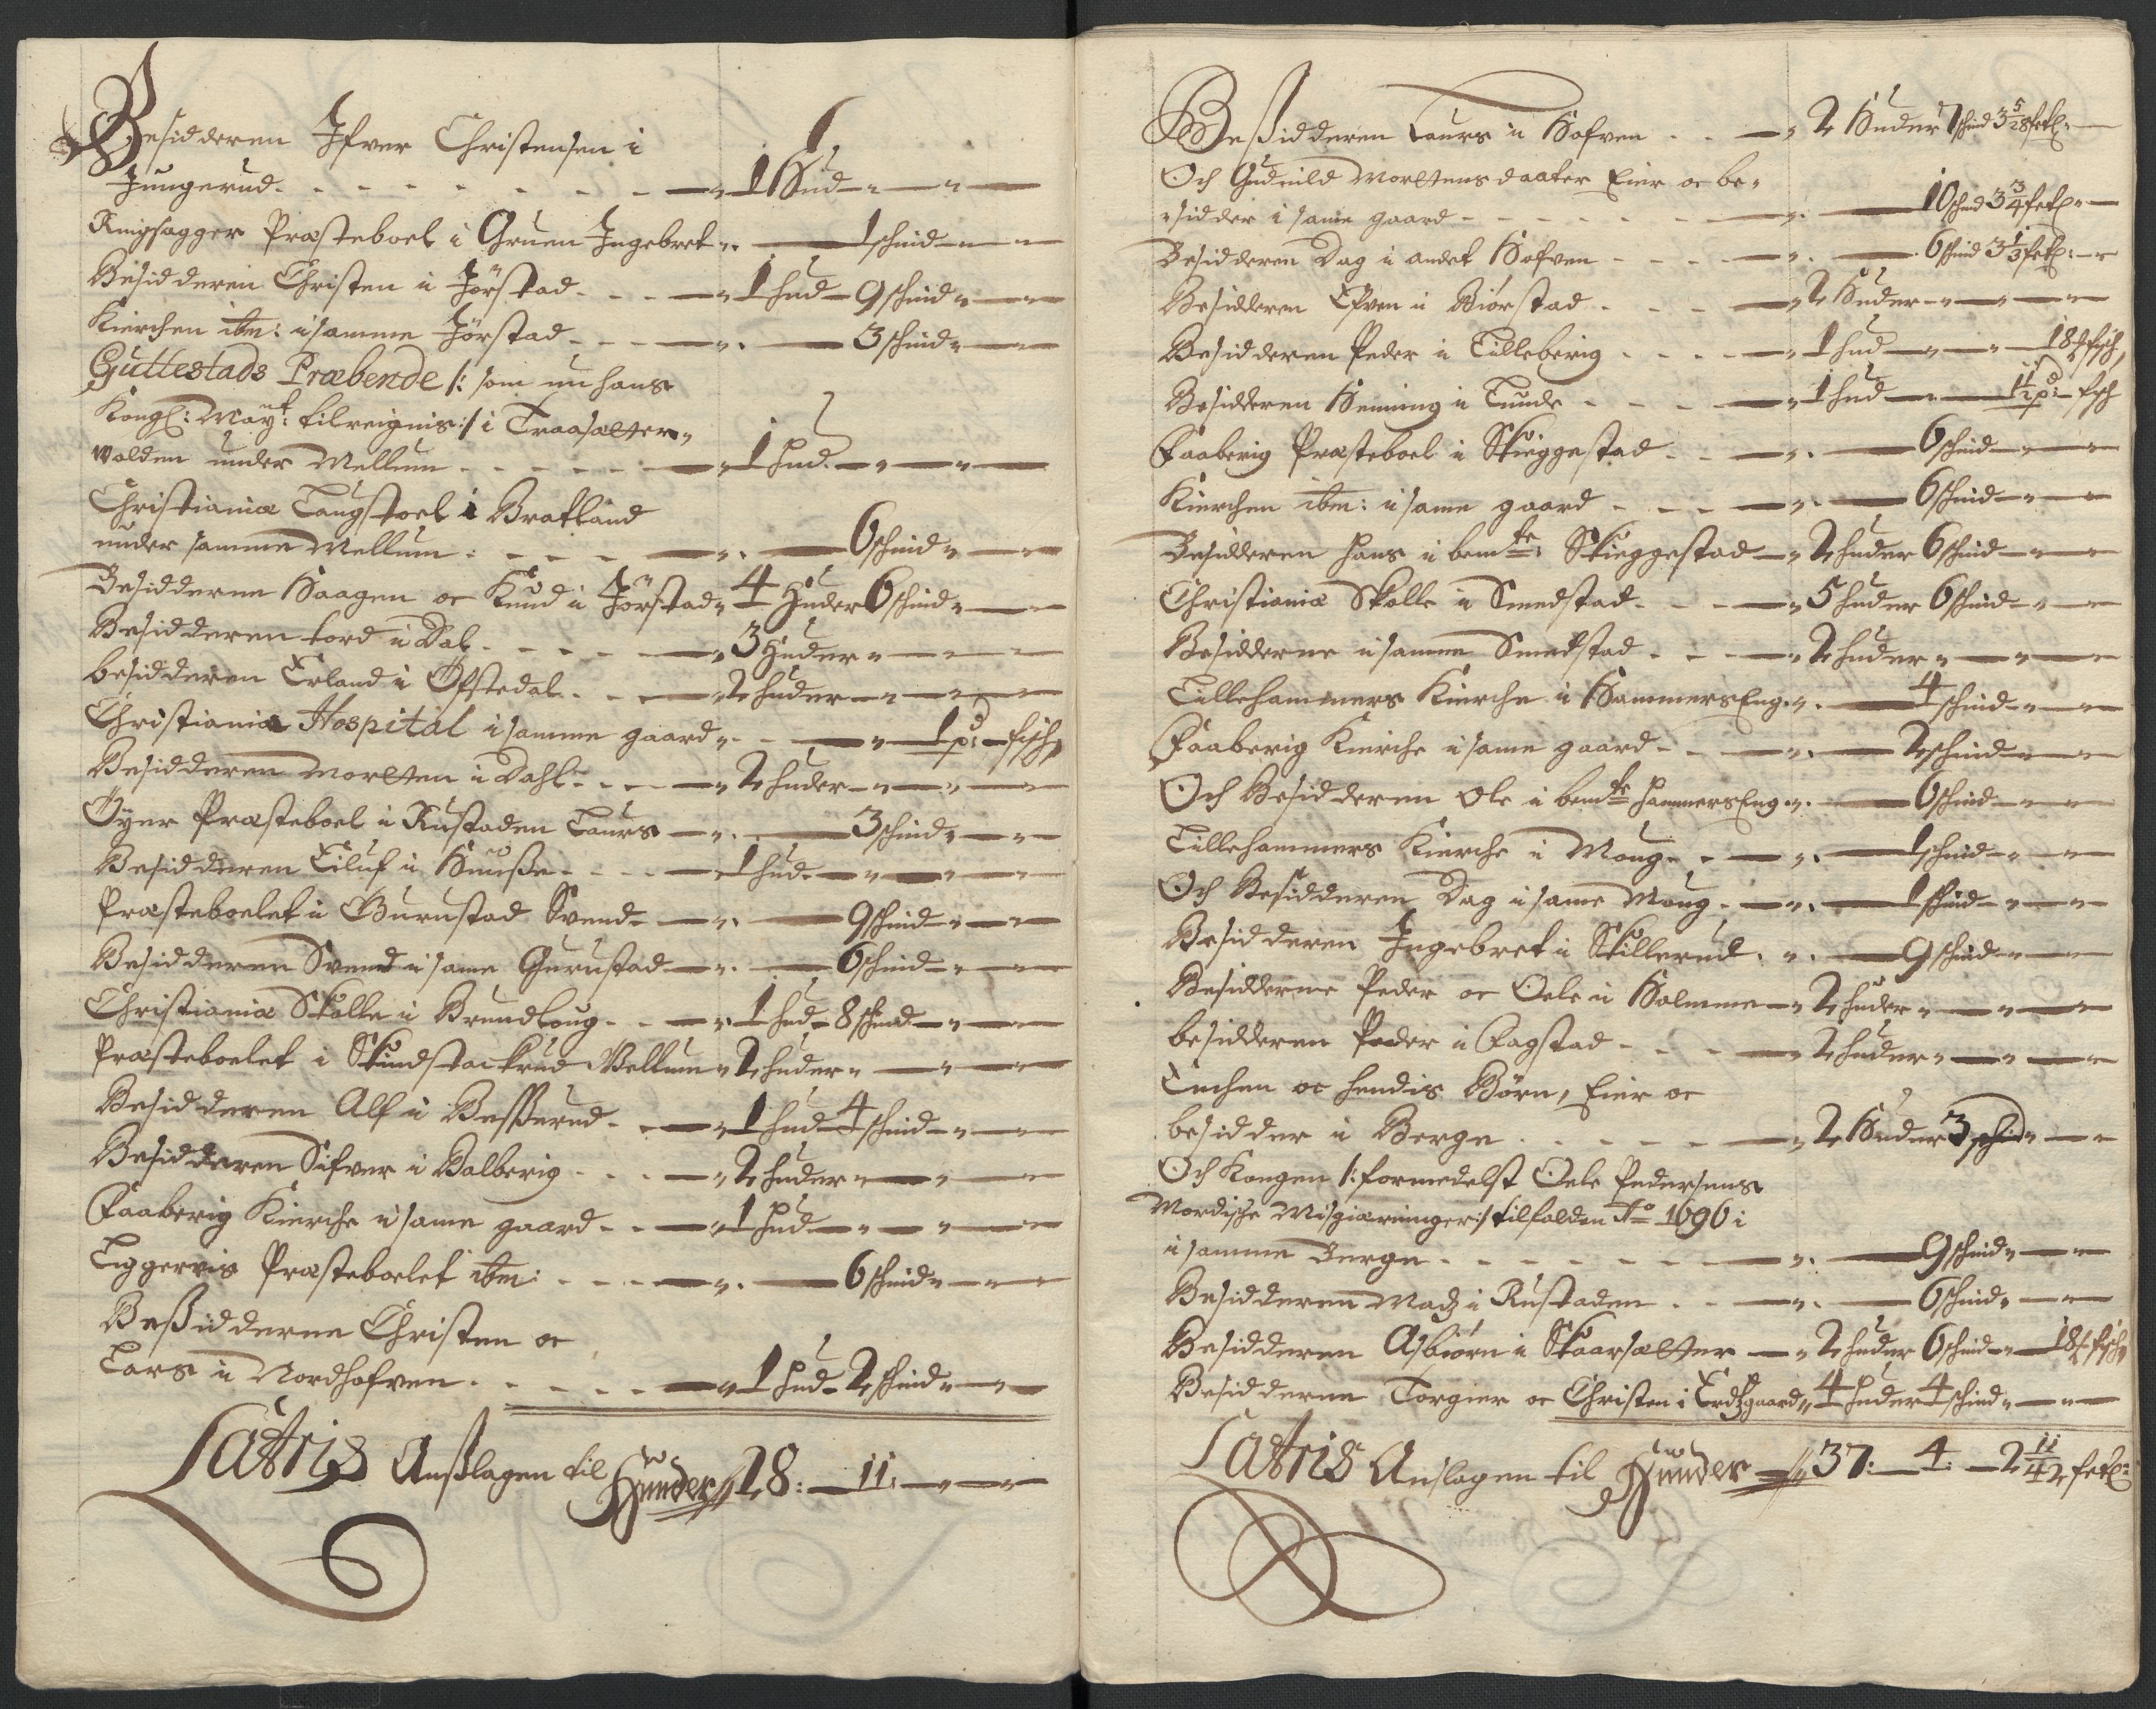 Besidderen Ifver Christensen i
Jungerud - - - - - - - - 1 Hud - - -
Ringsagger Præsteboel i Gruen Ingebret - 1 schind - -
Besidderen Christen i Jörstad - - - 1 hud - 9 schind - -
Kierchen ibm: i samme Jörstad - - - 3 schind - -
Guttestads Præbende /: som nu hans
Kongl: Mayt: tilreignis :/ i Traasætter
wolden under Mellum - - - - - 1 hud - - -
Christianiæ Laugstoel i Bratland
under samme Mellum : - - - - 6 schind - -
Besidderne Haagen oc Knud i Jörstad - 4 Huder 6 schind - -
Besidderen tord i Dal - - - - 3 Huder - - -
besidderen Erland i Öfstedal - - 2 huder - - -
Christianiæ Hospital i samme gaard - - - 1 pd: fisch
Besidderen Morten i Dahl - - - 2 huder - - -
Öyer Præsteboel i Rustaden Laurs - - 3 schind - -
Besidderen Eiluf i Hunße - - - 1 hud - - -
Præsteboelet i Gurustad Svend - - 9 schind - -
Besidderen Svend i same Gurustad - - 6 schind - -
Christianiæ Skolle i Brundloug - - 1 hud - 8 schind - -
Præsteboelet i Skindstackrud Mellum - 2 huder - - -
Besidderen Alf i Besserud - - 1 hud 4 schind - -
Besidderen Sifver i Balberig - - - 2 huder - - -
Faaberig Kierche i same gaard - - 1 hud - - -
Eggervis Præsteboelet ibm: - - - - 6 schind - -
Beßidderne Christen oc
Lars i Nordhofven - - - - - 1 hud - 2 schind - -
Latris Anßlagen til Hunder // 28: - 11: - -
Beßidderen Laurs i Hofven - - - 2 Huder 7 schind 3 5/28 fetl: -
Och Gudnild Mortensdaater Eier oc be-
sidder i same gaard - - - - - - 10 schind 3 3/4 fetl: -
Besidderen Dag i andet Hofven - - - - 6 schind 3 1/3 fetl: -
Besidderen Efven i Biörstad - - - 2 Huder - - -
Besidderen Peder i Lilleberig - - - - 1 hud - - 18 # fisch
Besidderen Henning i Lunde - - - - 1 hud - - 1 1/2 pd: fisch
Faaberig Præsteboel i Skieggestad - - - 6 schind - -
Kierchen ibm: i same gaard - - - - 6 schind - -
Besidderen hans i bemte: Skieggestad - 2 huder 6 schind - -
Christianiæ Skolle i Smedstad - - - 5 huder 6 schind - -
Besidderne i samme Smedstad - - - 2 huder - - -
Lillehammers Kierche i HammersEng - - 4 schind - -
Faaberig Kierche i same gaard - - - 2 schind - -
Och Besidderen Ole i bemte hammersEng - - 6 schind - -
Lillehammers Kierche i Moug - - - - 1 schind - -
Och Besidderen Dag i same Moug - - - 1 schind - -
Besidderen Ingebret i Skillerud - - 9 schind - -
Besidderne Peder oc Oele i Holmme - 2 huder - - -
besidderen Peder i Fagstad - - - - 2 huder - - -
Enchen oc hendis Börn, Eier oc
besidder i Berge - - - - - - 2 Huder 3 schind - -
Och Kongen /: formedelst Oele Pedersens
Mordische Misgierninger :/ tilfalden Ao 1696 i
i samme Berge - - - - - - - 9 schind - -
Besidderen Madz i Rustaden - - - - 6 schind - -
Besidderen Asbiörn i Skaarsætter - 2 huder 6 schind - 18 # fisch
Besidderne Torgier oc Christen i Erdtzgaard // 4 huder 4 schind - -
Latris Anslagen til Hunder // 37: - 4: - 2 11/42 fetl: